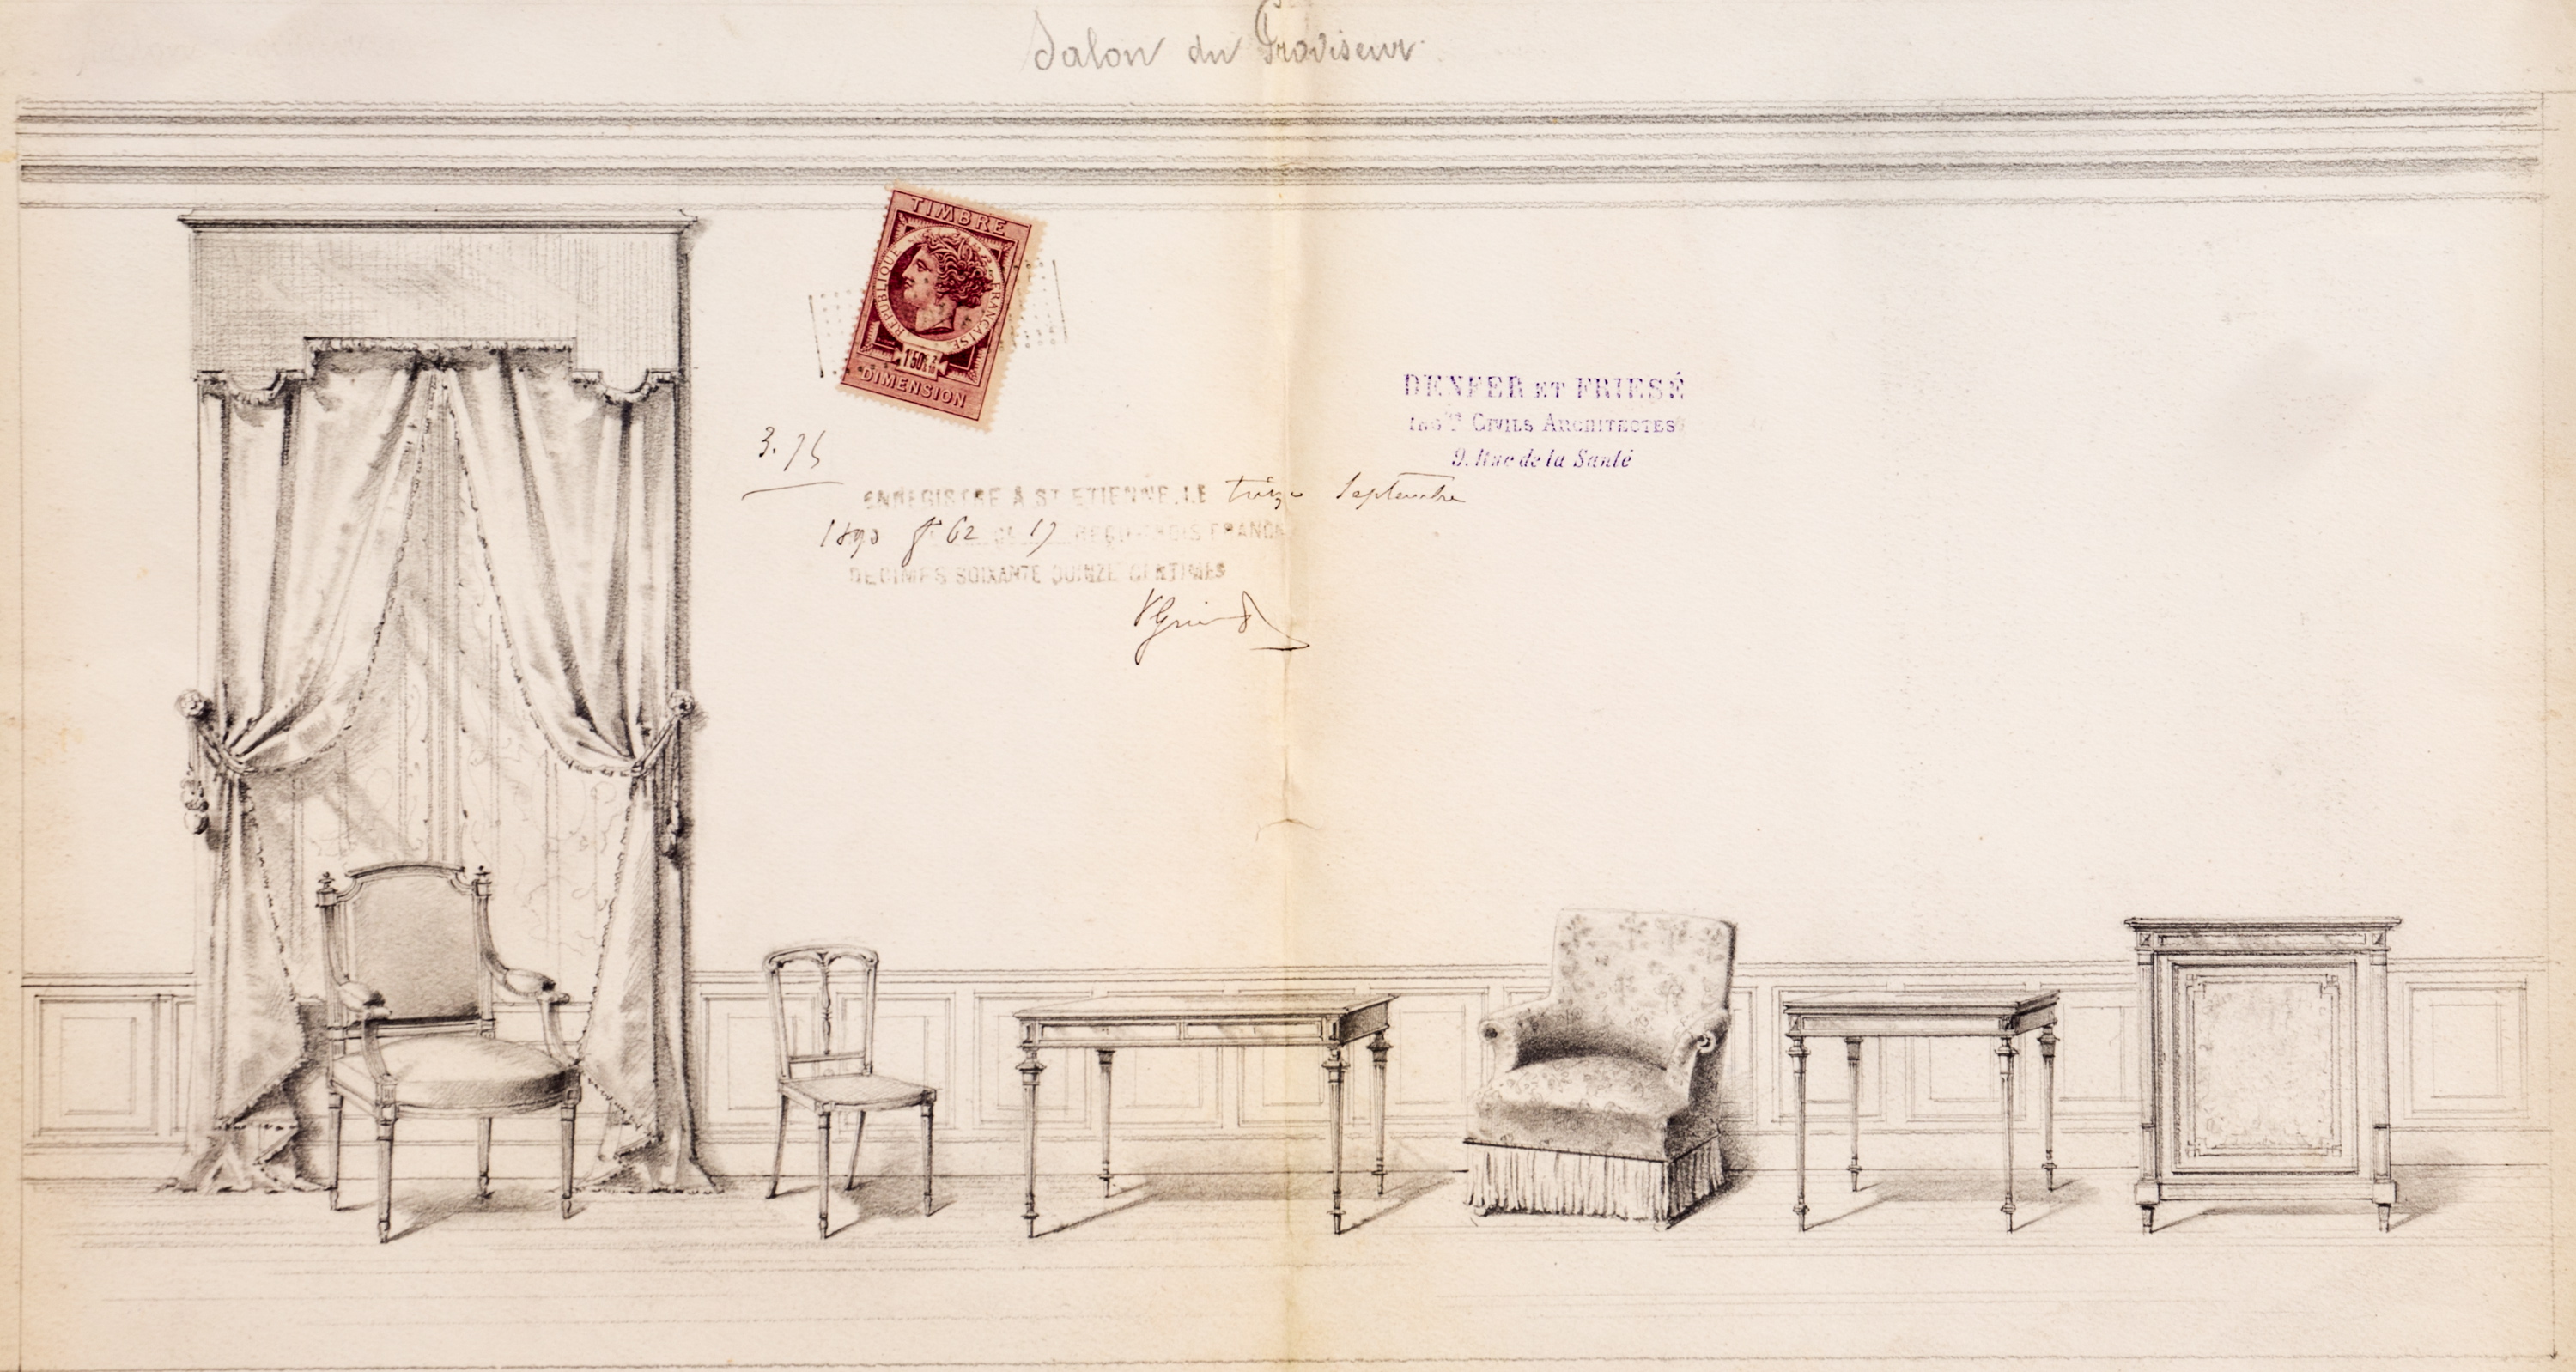 Salon du Proviseur
TIMBRE
RÉPUBLIQUE FRANÇAISE
1F50c
DIMENSION
DENFER ET FRIESÉ
INGrs CIVILS ARCHITECTES
9. Rue de la Santé
3.75
ENREGISTRE A ST ETIENNE, LE treize Septembre
1890 fo 62 CE 17 REÇU TROIS FRANCS
DECIMES SOIXANTE QUINZE CENTIMES